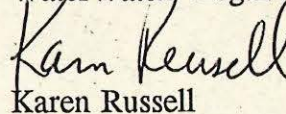 Karen Russell
Karen Russell